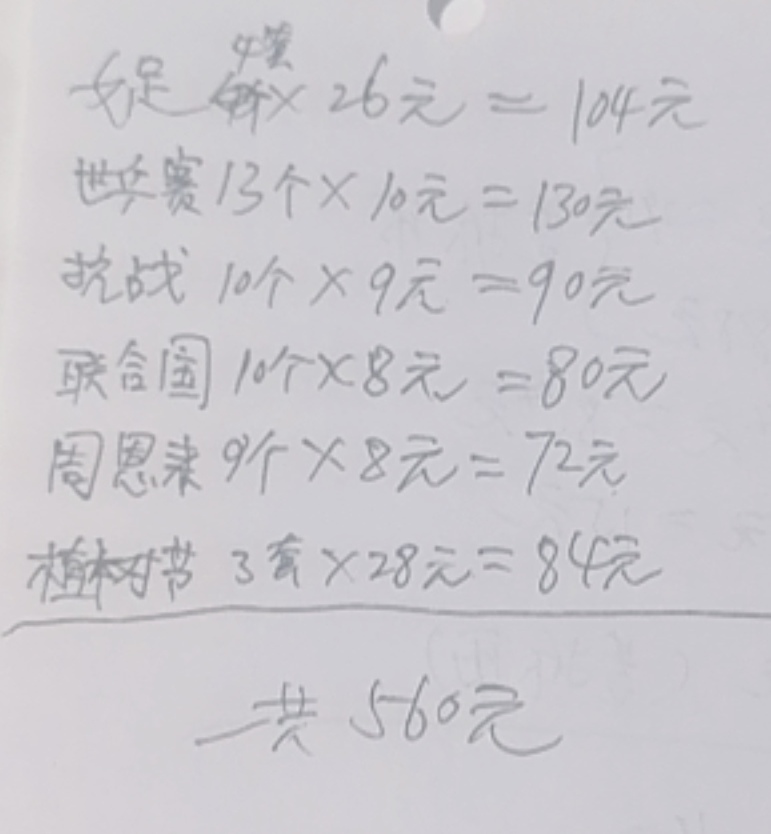 女足 4套×26元=104元
世乒赛 13个×10元=130元
抗战 10个×9元=90元
联合国 10个×8元=80元
周恩来 9个×8元=72元
植树节 3套×28元=84元
共 560元